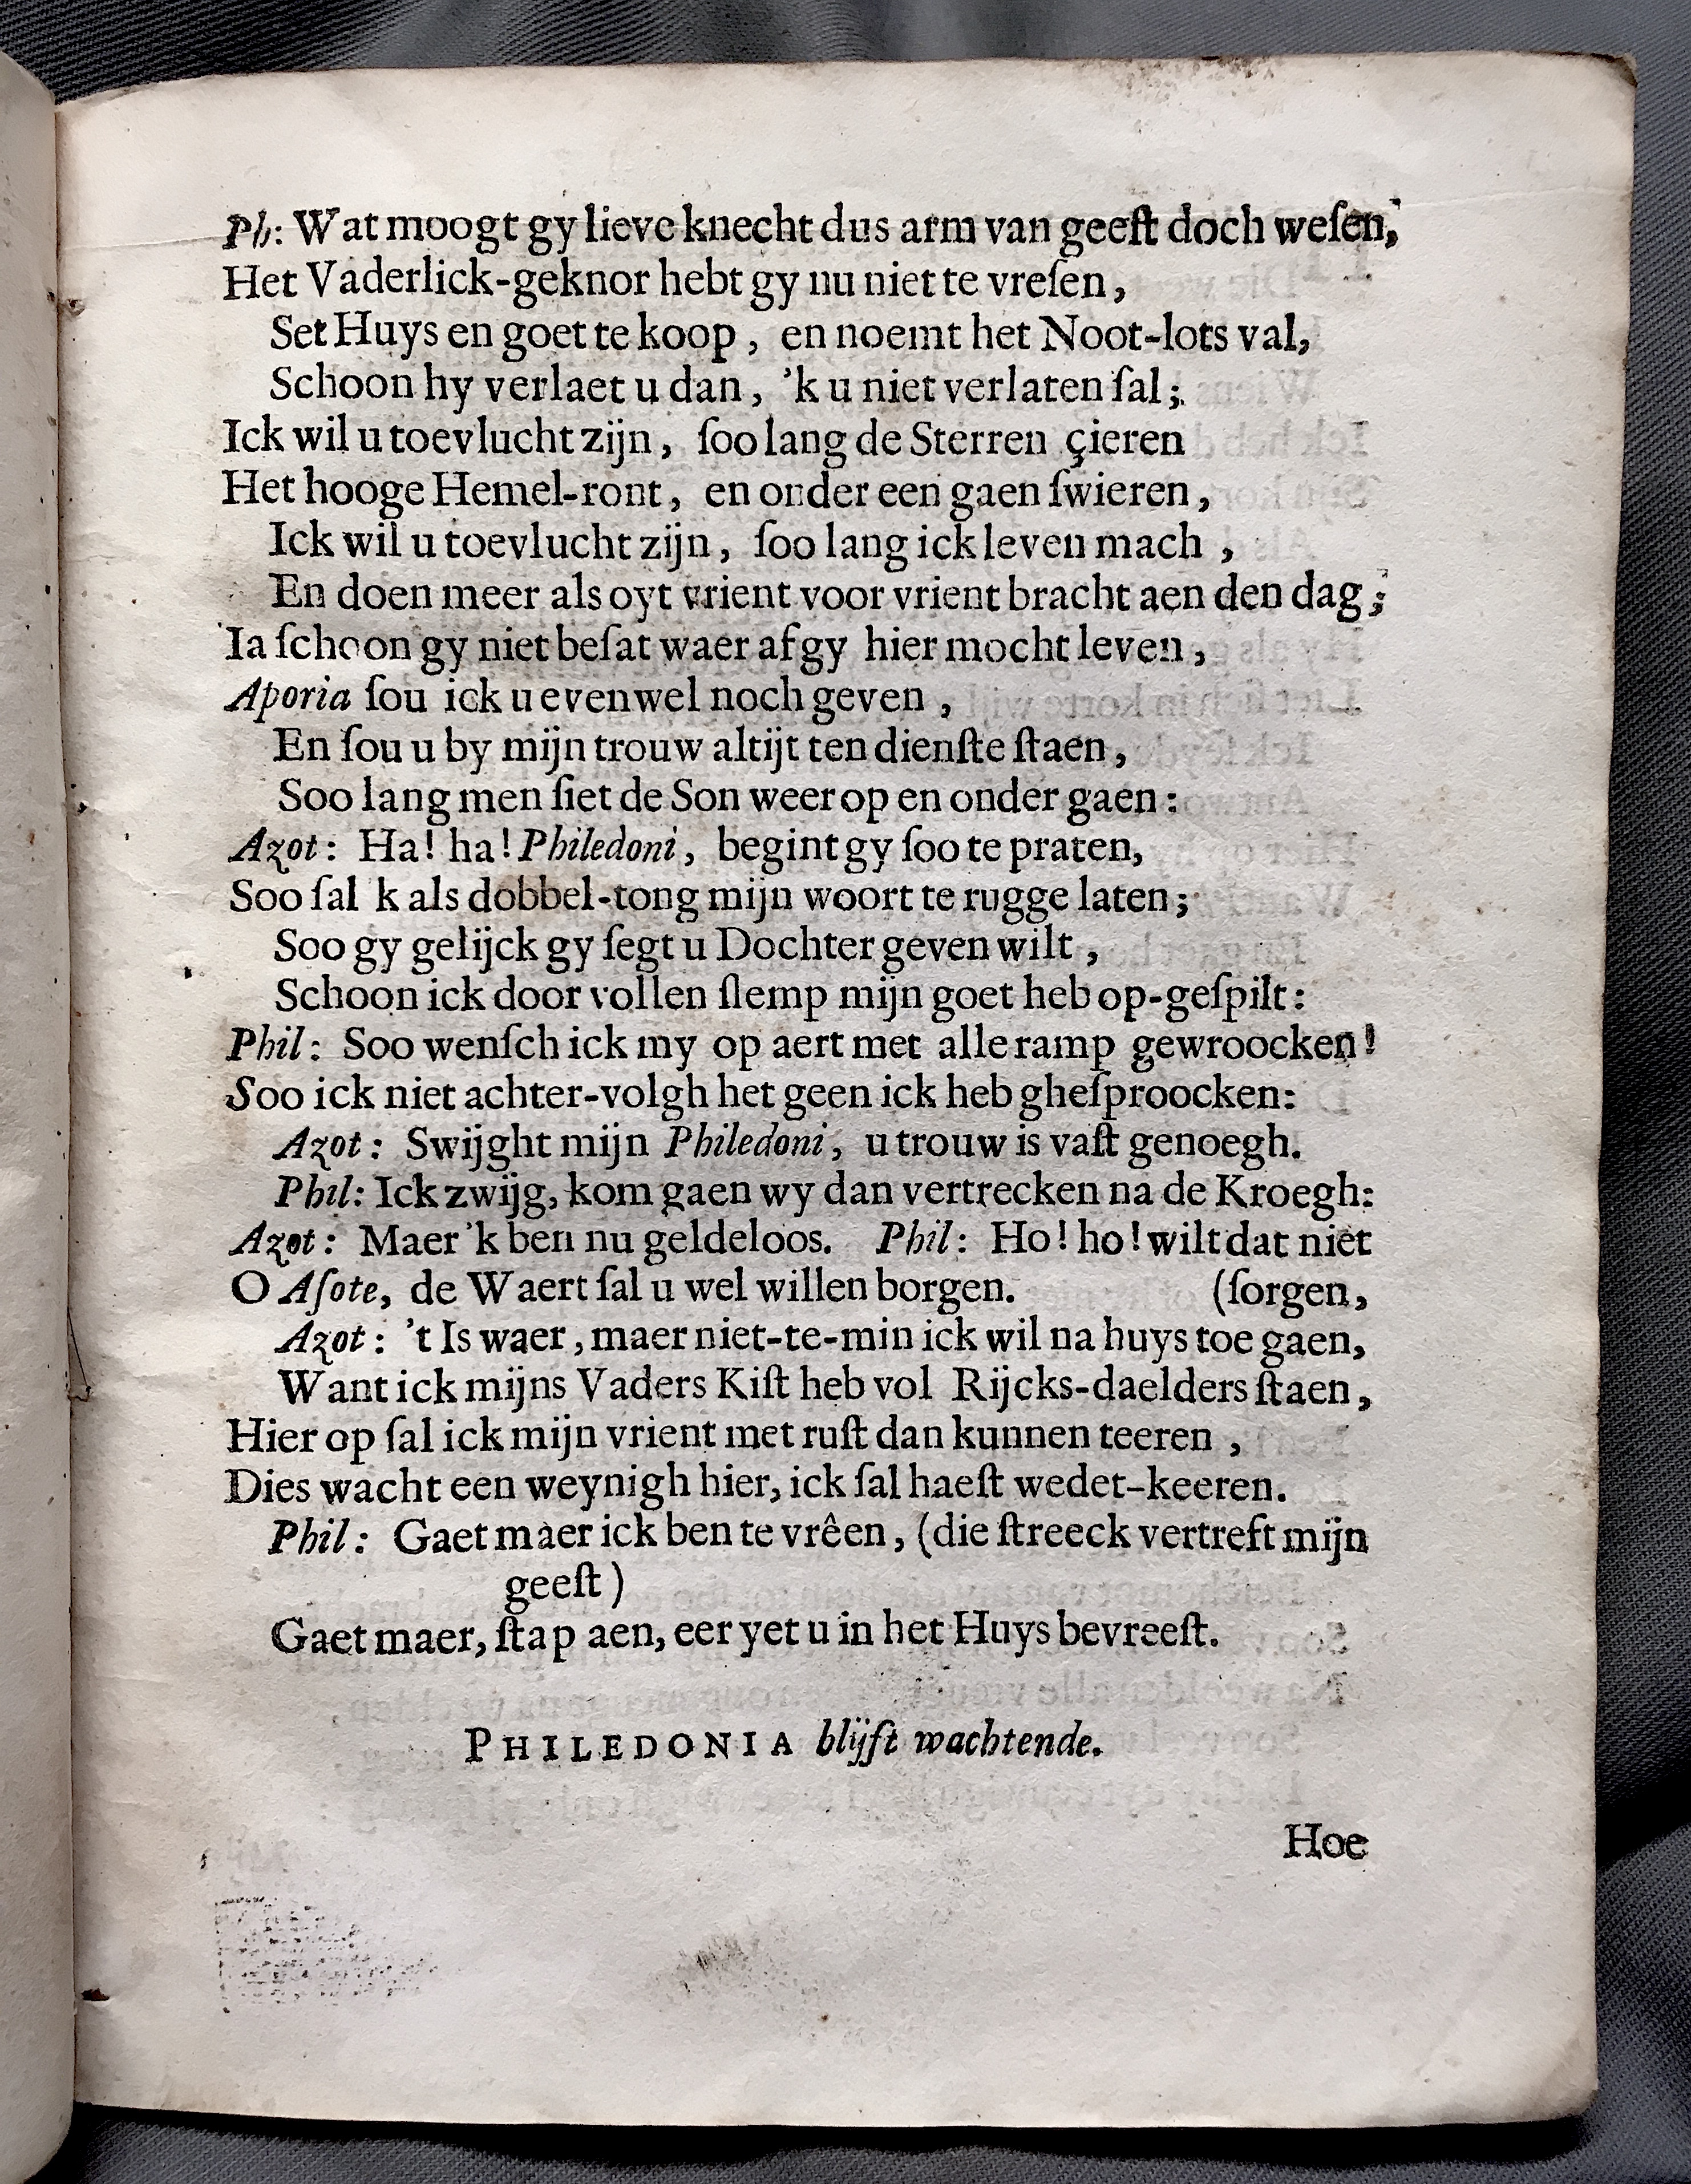 Ph: Wat moogt gy lieve knecht dus arm van geeſt doch weſen,
Het Vaderlick-geknor hebt gy nu niet te vreſen,
Set Huys en goet te koop, en noemt het Noot-lots val,
Schoon hy verlaet u dan, 'k u niet verlaten ſal;
Ick wil u toevlucht zijn, ſoo lang de Sterren çieren
Het hooge Hemel-ront, en onder een gaen ſwieren,
Ick wil u toevlucht zijn, ſoo lang ick leven mach,
En doen meer als oyt vrient voor vrient bracht aen den dag;
Ia ſchoon gy niet beſat waer af gy hier mocht leven,
Aporia ſou ick u evenwel noch geven,
En ſou u by mijn trouw altijt ten dienſte ſtaen,
Soo lang men ſiet de Son weer op en onder gaen:
Azot: Ha! ha! Philedoni, begint gy ſoo te praten,
Soo ſal k als dobbel-tong mijn woort te rugge laten;
Soo gy gelijck gy ſegt u Dochter geven wilt,
Schoon ick door vollen ſlemp mijn goet heb op-geſpilt:
Phil: Soo wenſch ick my op aert met alle ramp gewroocken!
Soo ick niet achter-volgh het geen ick heb gheſproocken:
Azot: Swijght mijn Philedoni, u trouw is vaſt genoegh.
Phil: Ick zwijg, kom gaen wy dan vertrecken na de Kroegh:
Azot: Maer 'k ben nu geldeloos. Phil: Ho! ho! wilt dat niet
O Aſote, de Waert ſal u wel willen borgen. (ſorgen,
Azot: 't Is waer, maer niet-te-min ick wil na huys toe gaen,
Want ick mijns Vaders Kiſt heb vol Rijcks-daelders ſtaen,
Hier op ſal ick mijn vrient met ruſt dan kunnen teeren,
Dies wacht een weynigh hier, ick ſal haeſt wedet-keeren.
Phil: Gaet maer ick ben te vrêen, (die ſtreeck vertreft mijn
geeſt)
Gaet maer, ſtap aen, eer yet u in het Huys bevreeſt.
PHILEDONIA blijft wachtende.
Hoe